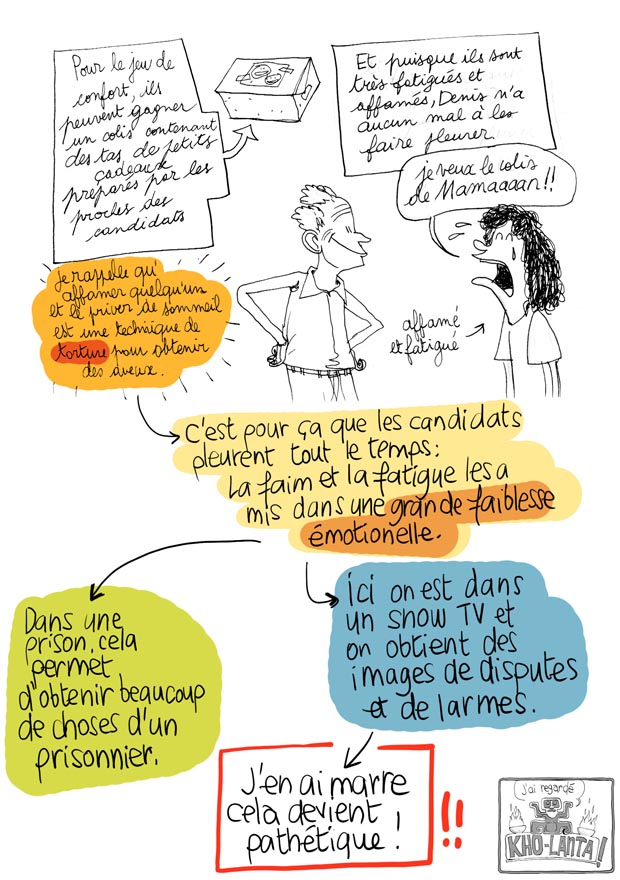 Pour le jeu de
confort, ils
peuvent gagner
un colis contenant
des tas de petits
cadeaux
préparés par les
proches des
candidats
Et puisque ils sont
très fatigués et
affamés, Denis n'a
aucun mal à les
faire pleurer.
je veux le colis
de Mamaaaan!!
je rappelle qu'
affamer quelqu'un
et le priver de sommeil
est une technique de
torture pour obtenir
des aveux.
affamé
et fatigué
C'est pour ça que les candidats
pleurent tout le temps:
La faim et la fatigue les a
mis dans une grande faiblesse
émotionelle.
Dans une
prison, cela
permet
d'obtenir beaucoup
de choses d'un
prisonnier.
ici on est dans
un show TV et
on obtient des
images de disputes
et de larmes.
J'en ai marre
cela devient
pathétique !
!!
J'ai regardé
KHO-LANTA!